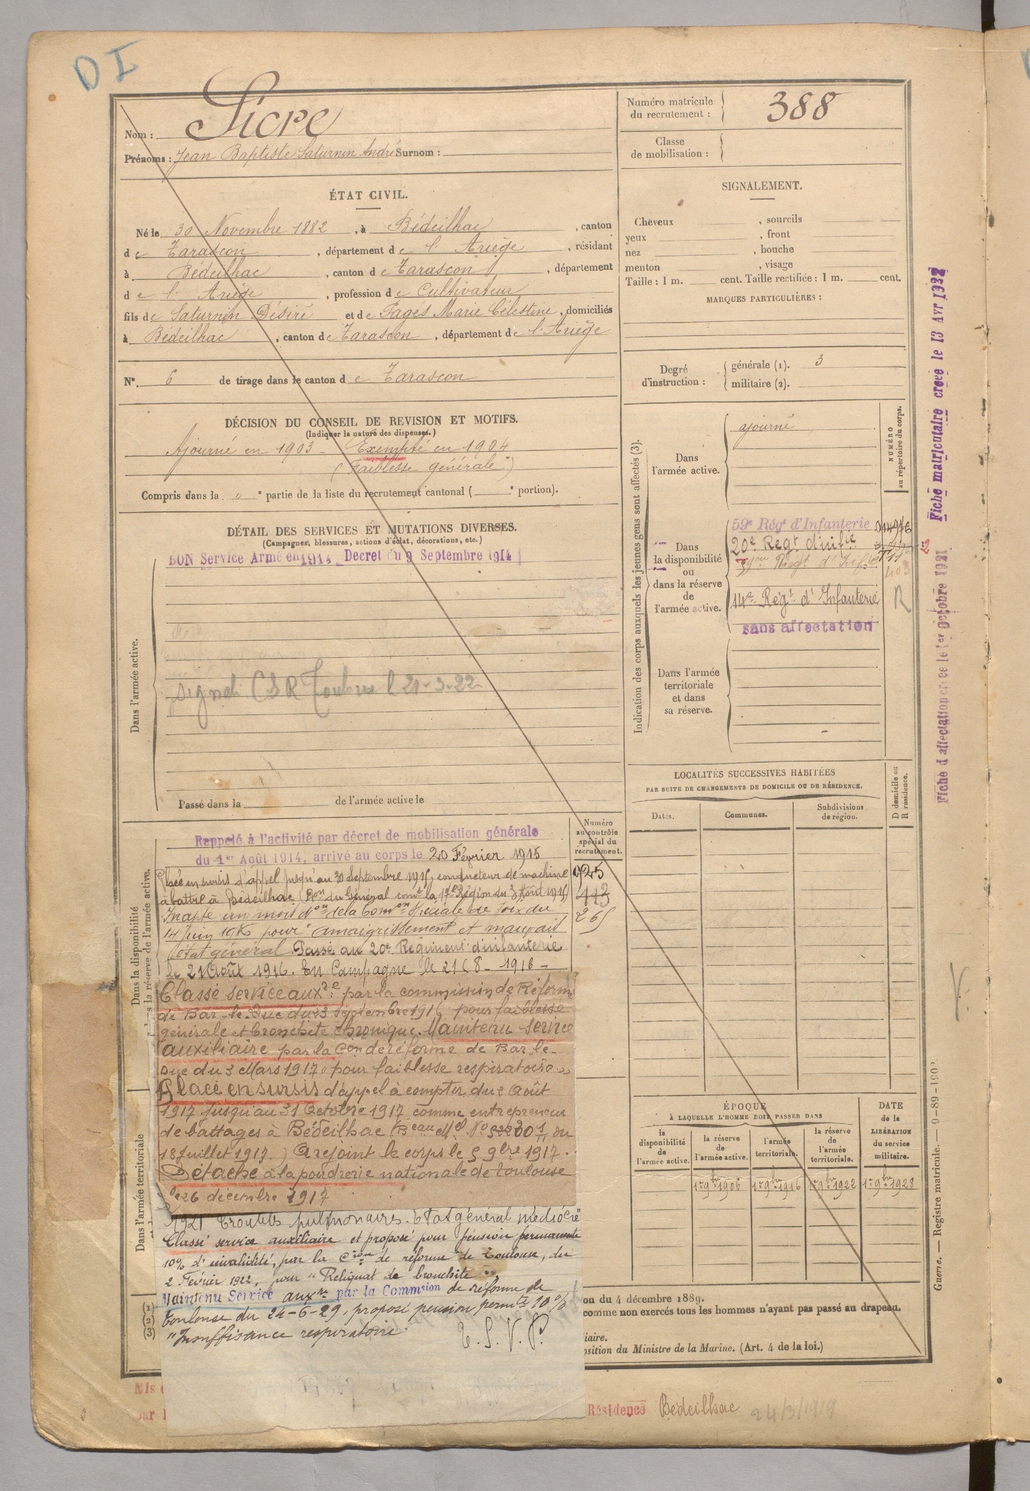 DI
Nom : Sicre
Prénoms : Jean Baptiste Saturnin André Surnom :
Numéro matricule du recrutement : 388
Classe de mobilisation :
ÉTAT CIVIL.
Né le 30 Novembre 1882, à Bédeilhac, canton
de Tarascon, département de l'Ariège, résidant
à Bédeilhac, canton de Tarascon, département
de l'Ariège, profession de Cultivateur
fils de Saturnin Désiré et de Fages Marie Célestine, domiciliés
à Bédeilhac, canton de Tarascon, département de l'Ariège
N° 6 de tirage dans le canton de Tarascon
SIGNALEMENT.
Cheveux , sourcils
yeux , front
nez , bouche
menton , visage
Taille : 1 m. cent. Taille rectifiée : 1 m. cent.
MARQUES PARTICULIÈRES :
Degré d'instruction :
générale (1). 3
militaire (2).
DÉCISION DU CONSEIL DE REVISION ET MOTIFS.
(Indiquer la nature des dispenses.)
Ajourné en 1903 - Exempté en 1904
(faiblesse générale)
Compris dans la " e partie de la liste du recrutement cantonal ( e portion).
DÉTAIL DES SERVICES ET MUTATIONS DIVERSES.
(Campagnes, blessures, actions d'éclat, décorations, etc.)
BON Service Armé en 1914, Decret du 9 Septembre 1914
Dans l'armée active.
signalé CSR Toulouse le 21-3-22
Passé dans la de l'armée active le
Indication des corps auxquels les jeunes gens sont affectés (3).
NUMÉRO au répertoire du corps.
Dans l'armée active.
ajourné
Dans la disponibilité ou dans la réserve de l'armée active.
59e Régt d'Infanterie
20e Régt d'infie
14e Régt d'Infanterie
R
sans affectation
Dans l'armée territoriale et dans sa réserve.
Fiche matriculaire créée le 13 Avr 1922
Fiche d'affectation créée le 1er Octobre 1921
LOCALITÉS SUCCESSIVES HABITÉES
PAR SUITE DE CHANGEMENTS DE DOMICILE OU DE RÉSIDENCE.
D domicile ou R résidence.
Dates.
Communes.
Subdivisions de région.
Numéro au contrôle spécial du recrutement.
925
413
265
Dans la disponibilité
la réserve de l'armée active.
Rappelé à l'activité par décret de mobilisation générale
du 1er Août 1914, arrivé au corps le 20 Février 1915
Placé en sursis d'appel jusqu'au 30 Septembre 1915, conducteur de machine
à battre à Bédeilhac
Inapte un mois
14 Juin 1916 pour amaigrissement et mauvais
état général Passé au 20e Régiment d'infanterie
le 21 Août 1916. En Campagne le 21-8-1916
Classé service auxre par la commission de Réforme
de Bar-le-Duc du 23 septembre 1916 pour faiblesse
générale et bronchite chronique. Maintenu service
auxiliaire par la Con de réforme de Bar-le-
Duc du 3 Mars 1917 pour faiblesse respiratoire
Placé en sursis d'appel à compter du 2 Août
1917 jusqu'au 31 Octobre 1917 comme entrepreneur
de battages à Bédeilhac
18 Juillet 1917.) A rejoint le corps le 5 9bre 1917.
Détaché à la poudrerie nationale de Toulouse
le 26 décembre 1917
Dans l'armée territoriale
1921 troubles pulmonaires. État général médiocre
Classé service auxiliaire et proposé pour pension permanente
10% d'invalidité, par la Cion de réforme de Toulouse, du
2 Février 1922, pour "Reliquat de bronchite"
Maintenu Service auxre par la Commsion de réforme de
Toulouse du 24-6-29, proposé pension permte 10%
"Insuffisance respiratoire"
T.S.V.P.
ÉPOQUE
À LAQUELLE L'HOMME DOIT PASSER DANS
la disponibilité de l'armée active.
la réserve de l'armée active.
l'armée territoriale.
la réserve de l'armée territoriale.
DATE de la LIBÉRATION du service militaire.
1er 9bre 1906
1er 9bre 1916
1er 9bre 1922
1er 9bre 1928
on du 4 décembre 1889.
comme non exercés tous les hommes n'ayant pas passé au drapeau.
iaire.
osition du Ministre de la Marine. (Art. 4 de la loi.)
Guerre. — Registre matricule. — 9-89-190
Résidence Bédeilhac 24/3/1919